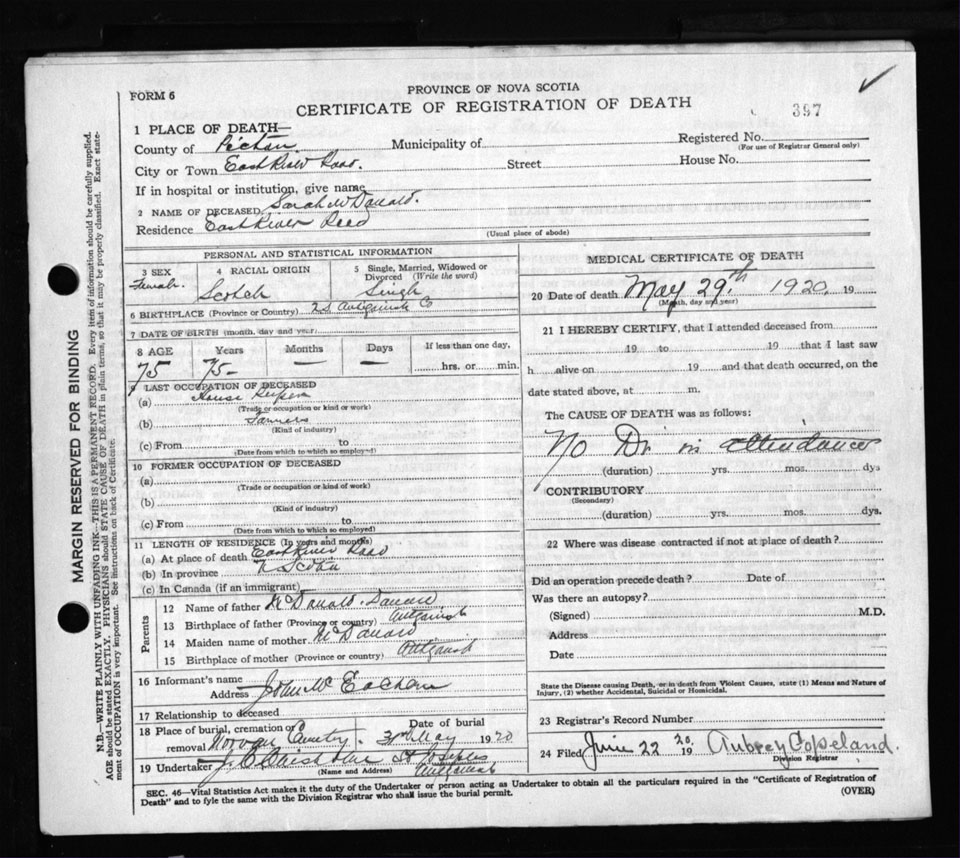 PROVINCE OF NOVA SCOTIA
FORM 6
CERTIFICATE OF REGISTRATION OF DEATH
397
1 PLACE OF DEATH—
County of Pictou Municipality of Registered No.
(For use of Registrar General only)
City or Town East River Road. Street House No.
If in hospital or institution, give name
2 NAME OF DECEASED Sarah McDonald.
Residence East River Road
(Usual place of abode)
PERSONAL AND STATISTICAL INFORMATION
3 SEX 4 RACIAL ORIGIN 5 Single, Married, Widowed or Divorced (Write the word)
Female Scotch Single
6 BIRTHPLACE (Province or Country) NS Antigonish Co
7 DATE OF BIRTH (month, day and year)
8 AGE Years Months Days If less than one day,
75 75 — — hrs. or min.
9 LAST OCCUPATION OF DECEASED
(a) House Keeper
(Trade or occupation or kind or work)
(b)
(Kind of industry)
(c) From to
(Date from which to which so employed)
10 FORMER OCCUPATION OF DECEASED
(a)
(Trade or occupation or kind of work)
(b)
(Kind of industry)
(c) From to
(Date from which to which so employed)
11 LENGTH OF RESIDENCE (In years and months)
(a) At place of death East River Road
(b) In province N Scotia
(c) In Canada (if an immigrant)
Parents
12 Name of father McDonald
13 Birthplace of father (Province or country) Antigonish
14 Maiden name of mother McDonald
15 Birthplace of mother (Province or country) Antigonish
16 Informant's name
Address John McEachern
17 Relationship to deceased
18 Place of burial, cremation or removal Cemetery. Date of burial May 1920
19 Undertaker J C Chisholm Antigonish
(Name and Address)
MEDICAL CERTIFICATE OF DEATH
20 Date of death May 29th 1920 19
(Month, day and year)
21 I HEREBY CERTIFY, that I attended deceased from
19 to 19 that I last saw
h alive on 19 and that death occurred, on the
date stated above, at m.
The CAUSE OF DEATH was as follows:
No Dr in attendance
(duration) yrs. mos. dys
CONTRIBUTORY
(Secondary)
(duration) yrs. mos. dys.
22 Where was disease contracted if not at place of death?
Did an operation precede death? Date of
Was there an autopsy?
(Signed) M.D.
Address
Date
State the Disease causing Death, or in death from Violent Causes, state (1) Means and Nature of
Injury, (2) whether Accidental, Suicidal or Homicidal.
23 Registrar's Record Number
24 Filed June 22 1920 Aubrey Copeland.
Division Registrar
SEC. 46—Vital Statistics Act makes it duty of the Undertaker or person acting as Undertaker to obtain all the particulars required in the "Certificate of Registration of
Death" and to fyle the same with the Division Registrar who shall issue the burial permit. (OVER)
MARGIN RESERVED FOR BINDING
N.B.—WRITE PLAINLY WITH UNFADING INK—THIS IS A PERMANENT RECORD. Every item of information should be carefully supplied.
AGE should be stated EXACTLY. PHYSICIANS should STATE CAUSE OF DEATH in plain terms, so that it may be properly classified. Exact state-
ment of OCCUPATION is very important. See instructions on back of Certificate.